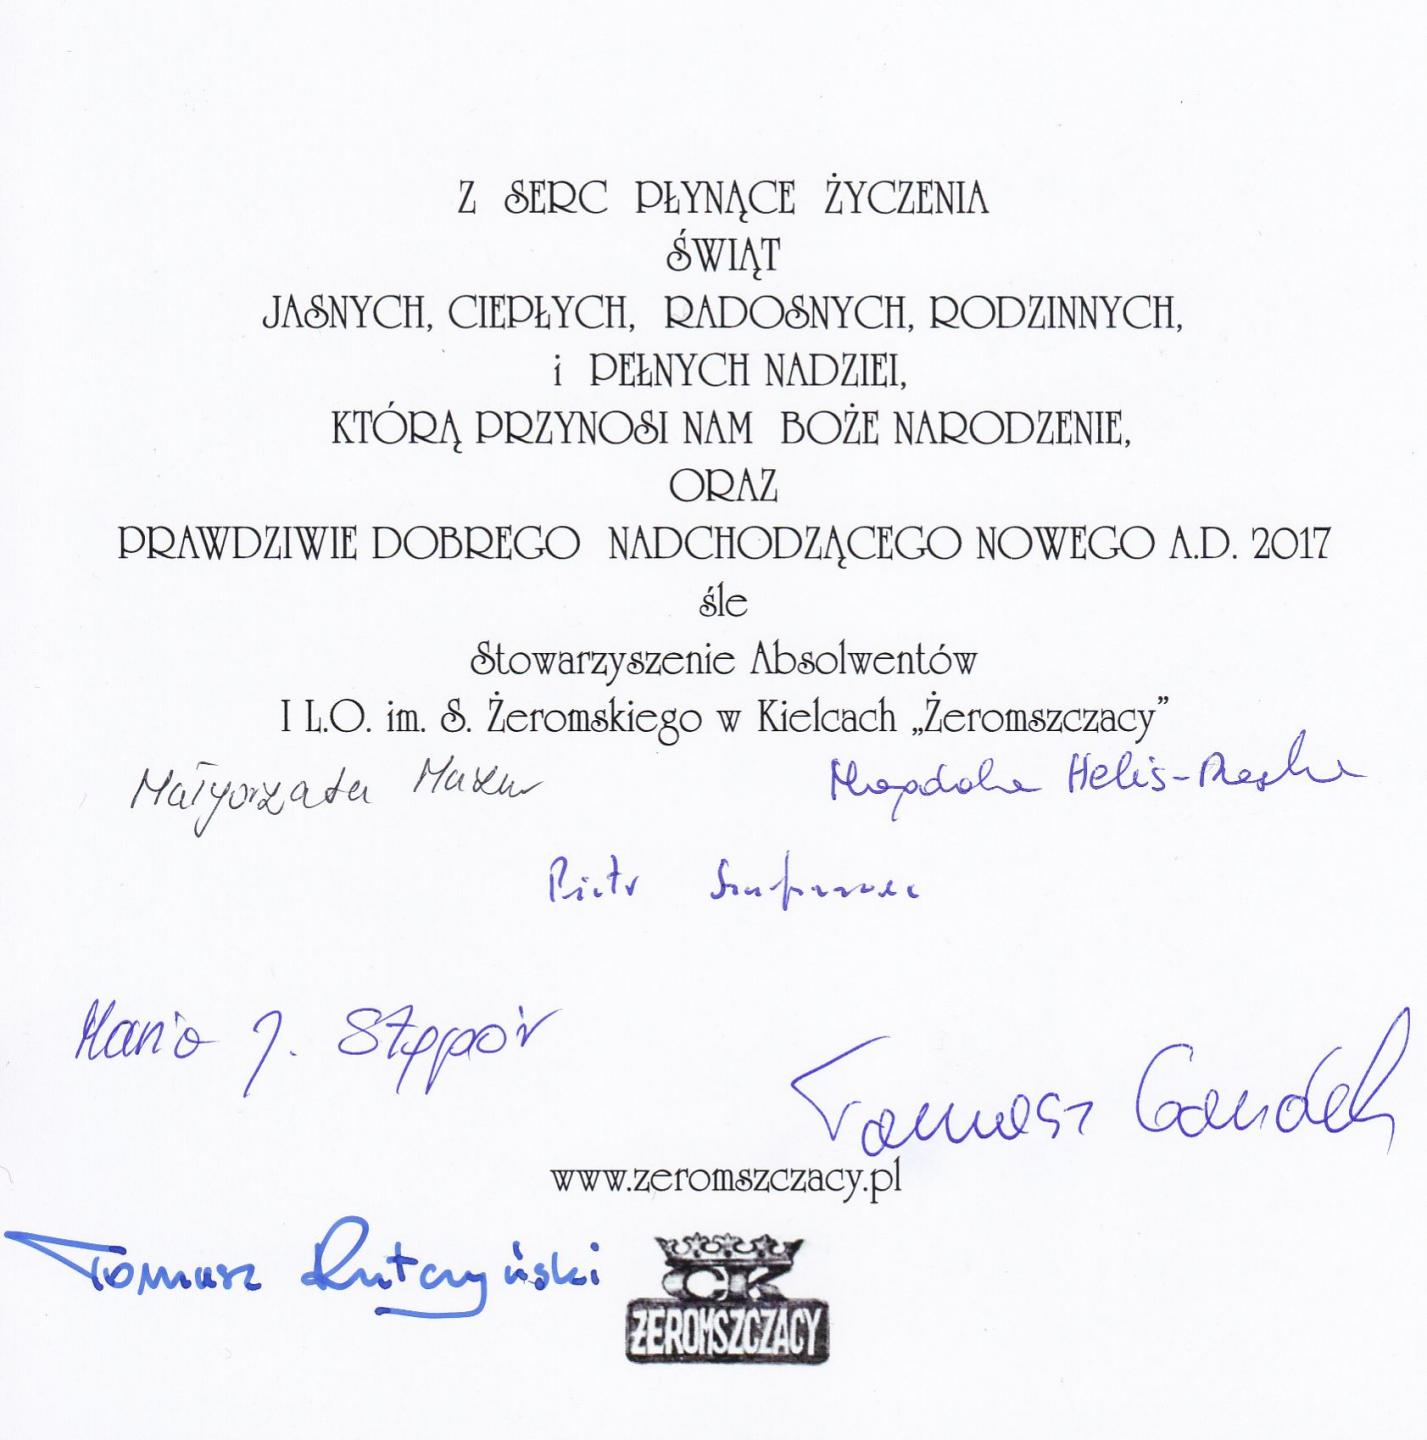 Z SERC PŁYNĄCE ŻYCZENIA
ŚWIĄT
JASNYCH, CIEPŁYCH, RADOSNYCH, RODZINNYCH,
i PEŁNYCH NADZIEI,
KTÓRĄ PRZYNOSI NAM BOŻE NARODZENIE,
ORAZ
PRAWDZIWIE DOBREGO NADCHODZĄCEGO NOWEGO A.D. 2017
śle
Stowarzyszenie Absolwentów
I L.O. im. S. Żeromskiego w Kielcach „Żeromszczacy”
Małgorzata Mazur
Magdalena Helis-
Piotr
Maria J. Stępór
Tomasz
www.zeromszczacy.pl
Tomasz Rutczyński
CK
ŻEROMSZCZACY